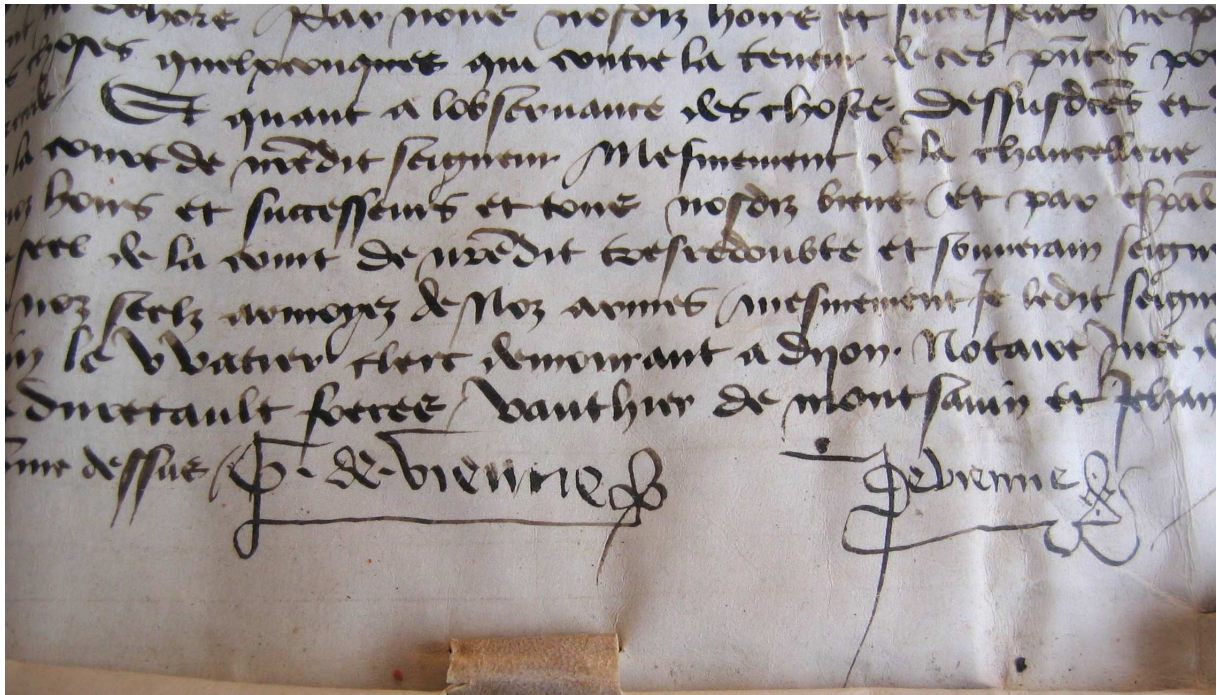 dehors Par nous nosdiz hoirs et successeurs ne
choses quelxconques qui contre la teneur de ces pñtes
Et quant a lobservance des choses dessusdcēs et
la court de nr̄edit seigneur Mesmement de la chancellerie
hoirs et successeurs et tous nosdiz biens et par
seel de la court de nr̄edit tresredoubte et souverain
noz seelz armoyez de Noz armes mesmement Je ledit
le Watier clerc demourant a dijon Notaire Jure
forees Vauthier de montsavin et Jehan
dessus G. de Vienne De Vienne